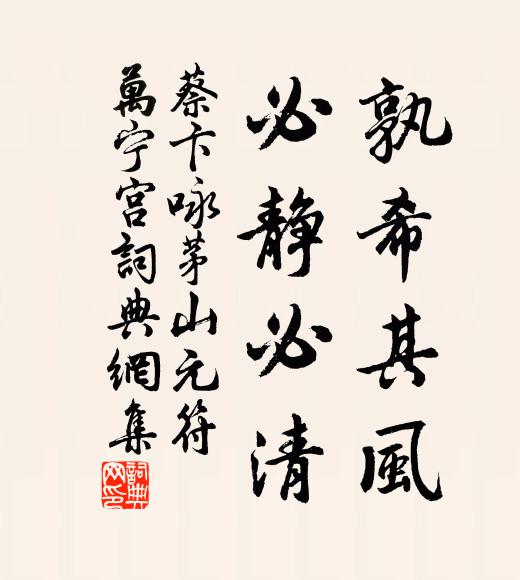 孰希其風
必静必清
蔡卞咏茅山元符
萬宁宫詞典網集
詞典网印